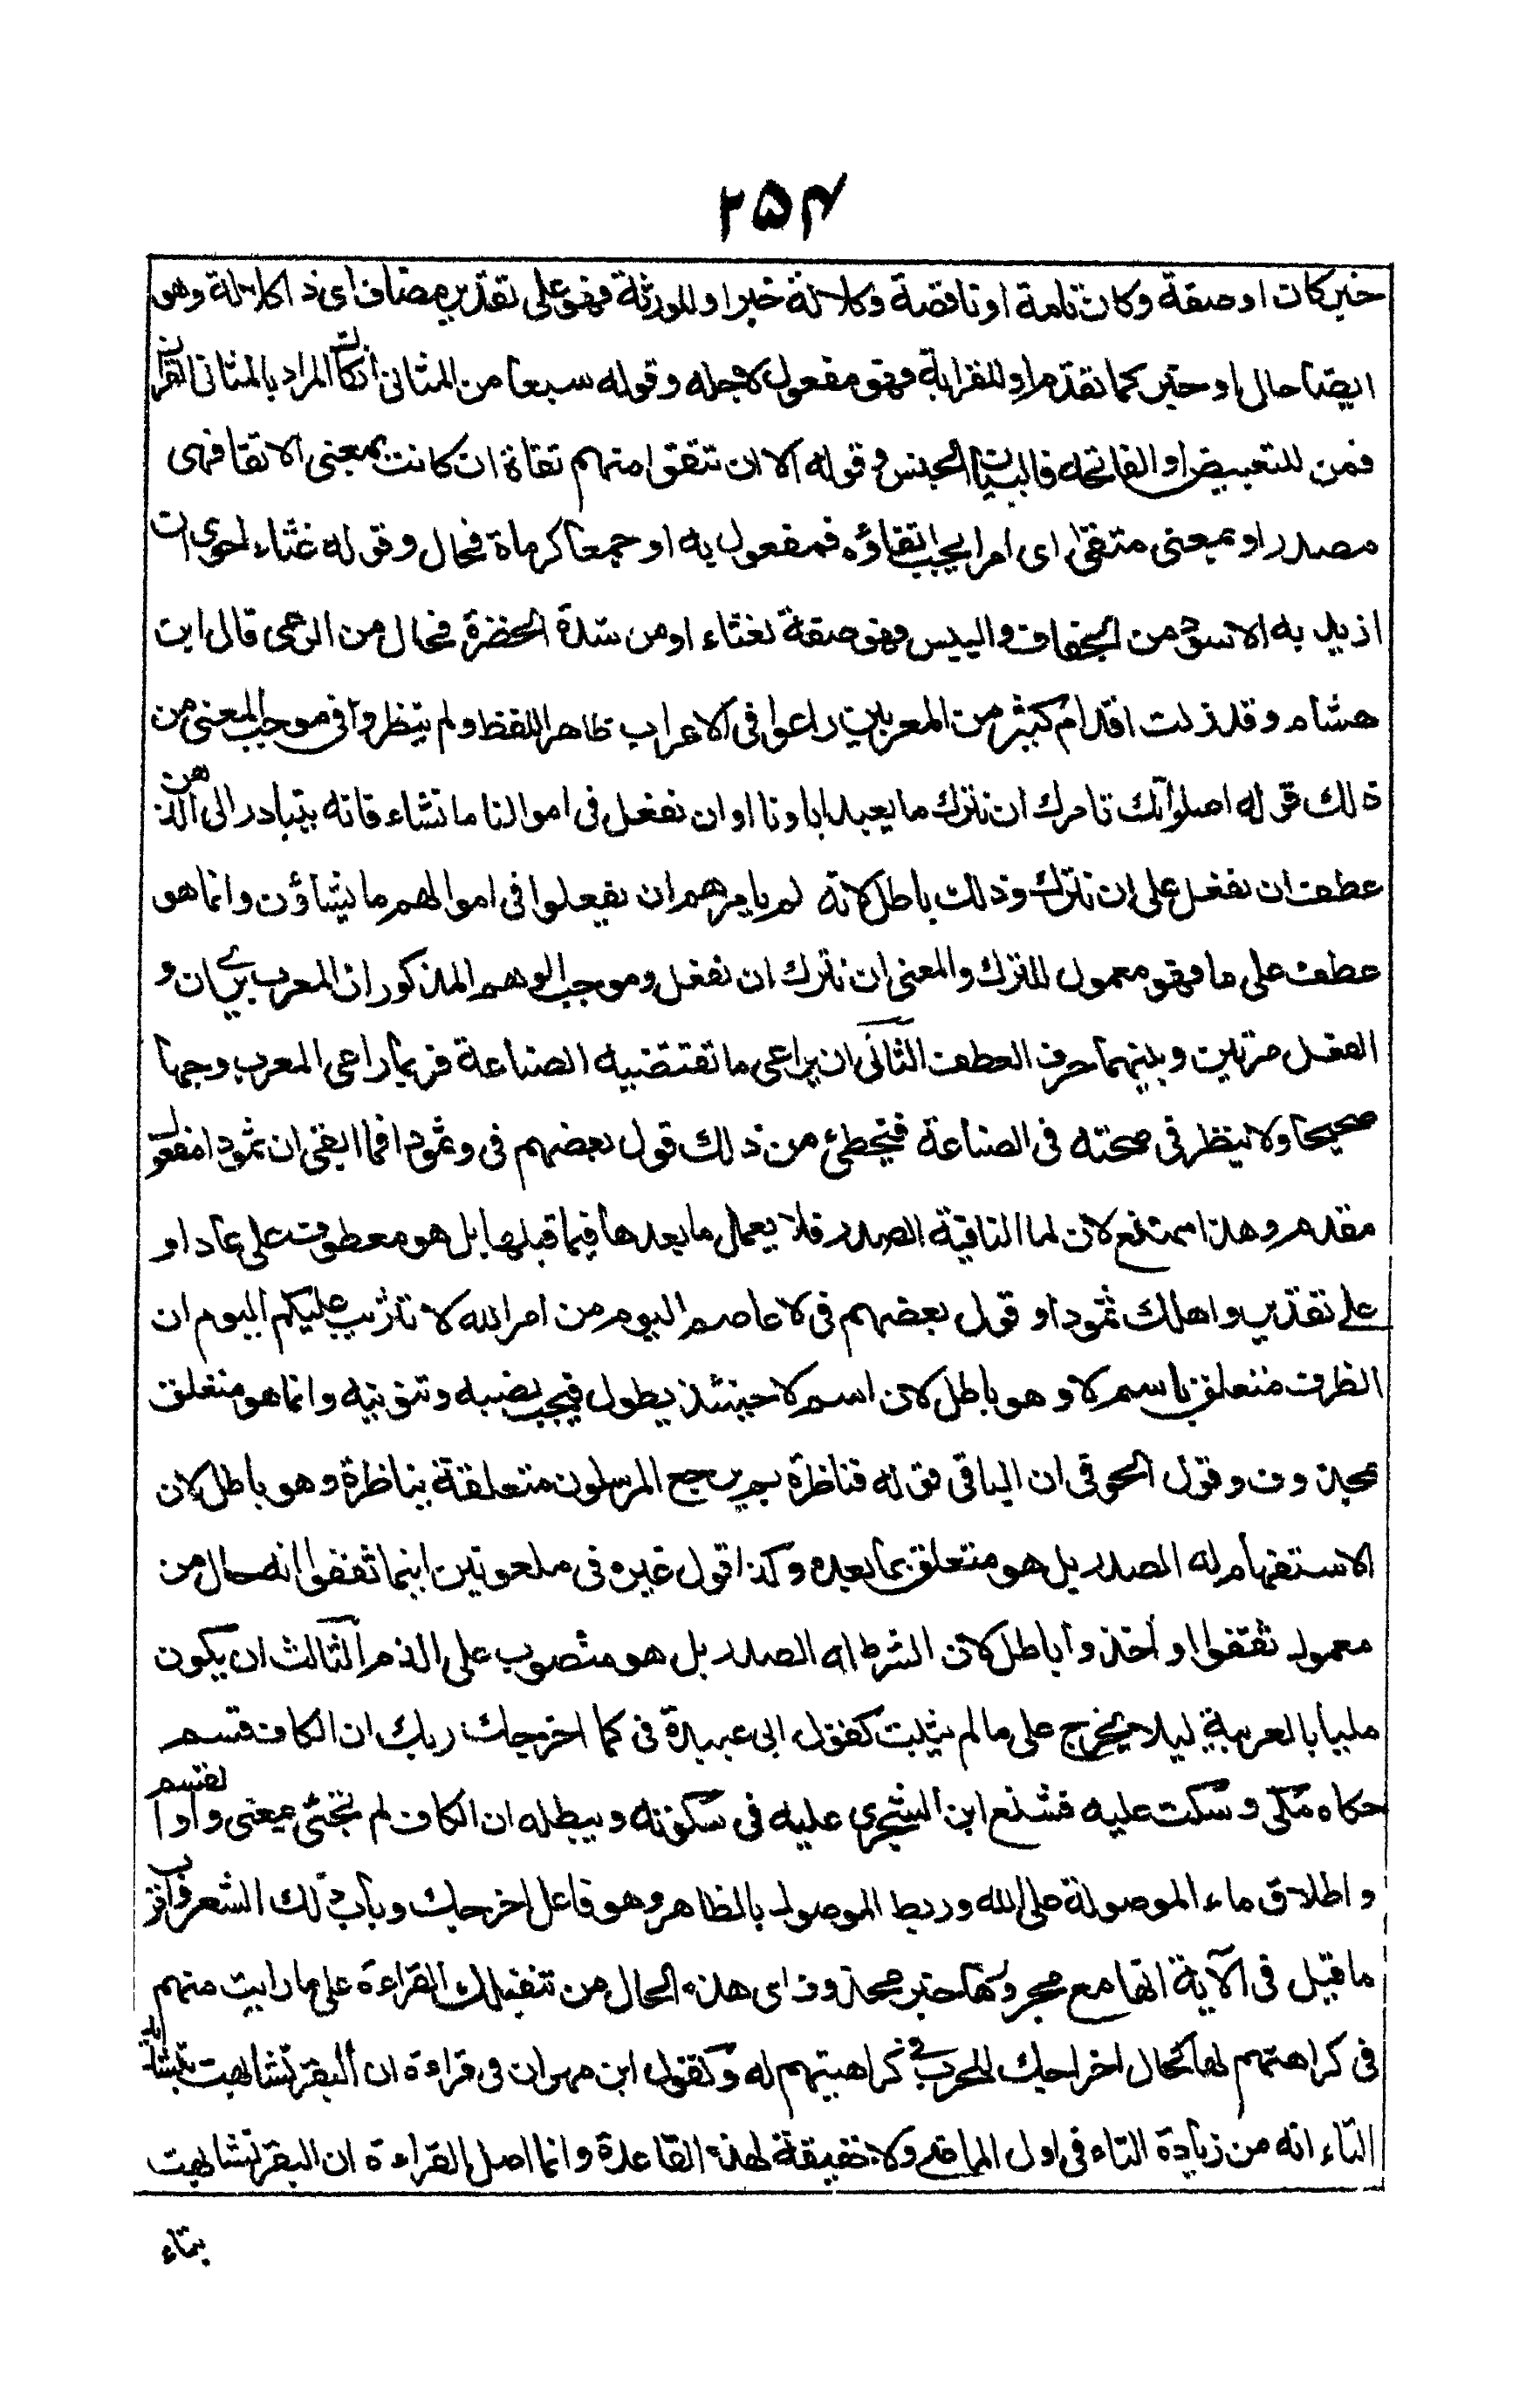 ٢٥٤
خبر كان او صفة وكان تامة او ناقصة وكلالة خبر او للورثة فهو على تقدير مضاف اى ذا كلالة وهو
ايضا حال او خبر كما تقدم او للقرابة فهو مفعول لاجله وقوله سبعا من المثانى ان كان المراد بالمثانى القران
فمن للتعبيض او الفاتحه فالبيان الجنس وقوله الا ان تتقوا منهم تقاة ان كانت بمعنى الاتقا فهى
مصدر او بمعنى متقى اى امرا يجب اتقاؤه فمفعول به او جمعا كرماة فحال وقوله غثاء احوى ان
اريد به الاسود من الجفاف واليبس فهو صفة لغثاء او من شدة الخضرة فحال من المرعى قال ابن
هشام وقد زلت اقدام كثير من المعربين راعوا فى الاعراب ظاهر اللفظ ولم ينظروا فى موجب المعنى من
ذلك قوله اصلوٰتك تامرك ان نترك ما يعبد اباونا او ان نفعل فى اموالنا ما نشاء فانه يتبادر الى الذهن
عطف ان نفعل على ان نترك وذلك باطل لانه لم يامرهم ان يفعلوا فى اموالهم ما يشاؤن وانما هو
عطف على ما فهو معمول للترك والمعنى ان نترك ان نفعل وموجب الوهم المذكور ان المعرب يرى ان و
الفعل مرتين وبينهما حرف العطف الثانى ان يراعى ما تقتضيه الصناعة فربما راعى المعرب وجها
صحيحا ولا ينظر فى صحته فى الصناعة فيخطئ من ذلك قول بعضهم فى وثمودا فما ابقى ان ثمودا مفعول
مقدم وهذا ممتنع لان لما النافية الصدر فلا يعمل ما بعدها فيما قبلها بل هو معطوف على عاد او
على تقدير واهلك ثمودا وقول بعضهم فى لا عاصم اليوم من امر الله لا تثريب عليكم اليوم ان
الظرف متعلق باسم لا وهو باطل لان اسم لا حينئذ يطول فيجب نصبه وتنوينه وانما هو متعلق
بمحذوف وقول الحوفى ان الباقى قوله فناظرة بم يرجع المرسلون متعلقة بناظرة وهو باطل لان
الاستفهام له الصدر بل هو متعلق بما بعده وكذا قول غيره فى ملعونين اينما ثقفوا انه حال من
معمول ثقفوا او اخذوا باطل لان الشرط له الصدر بل هو منصوب على الذم الثالث ان يكون
مليا بالعربية ليلا يخرج على ما لم يثبت كقول ابى عبيدة فى كما اخرجك ربك ان الكاف قسم
حكاه مكى وسكت عليه فشنع ابن الشجرى عليه فى سكوته ويبطله ان الكاف لم تجئ بمعنى واو القسم
واطلاق ماء الموصولة على الله وربط الموصول بالظاهر وهو فاعل اخرجك وباب ذلك الشعر واقرب
ما قيل فى الآية انها مع مجرورها خبر محذوف اى هذه الحال من تنفيلك القراءة على ما رايت منهم
فى كراهتهم لها كحال اخراجك للحرب فى كراهيتهم له وكقول ابن مهران فى قراءة ان البقر تشابهت بتشديد
التاء انه من زيادة التاء فى اول الماضى ولا حقيقة لهذه القاعدة وانما اصل القراءة ان البقر تشابهت
بتاء